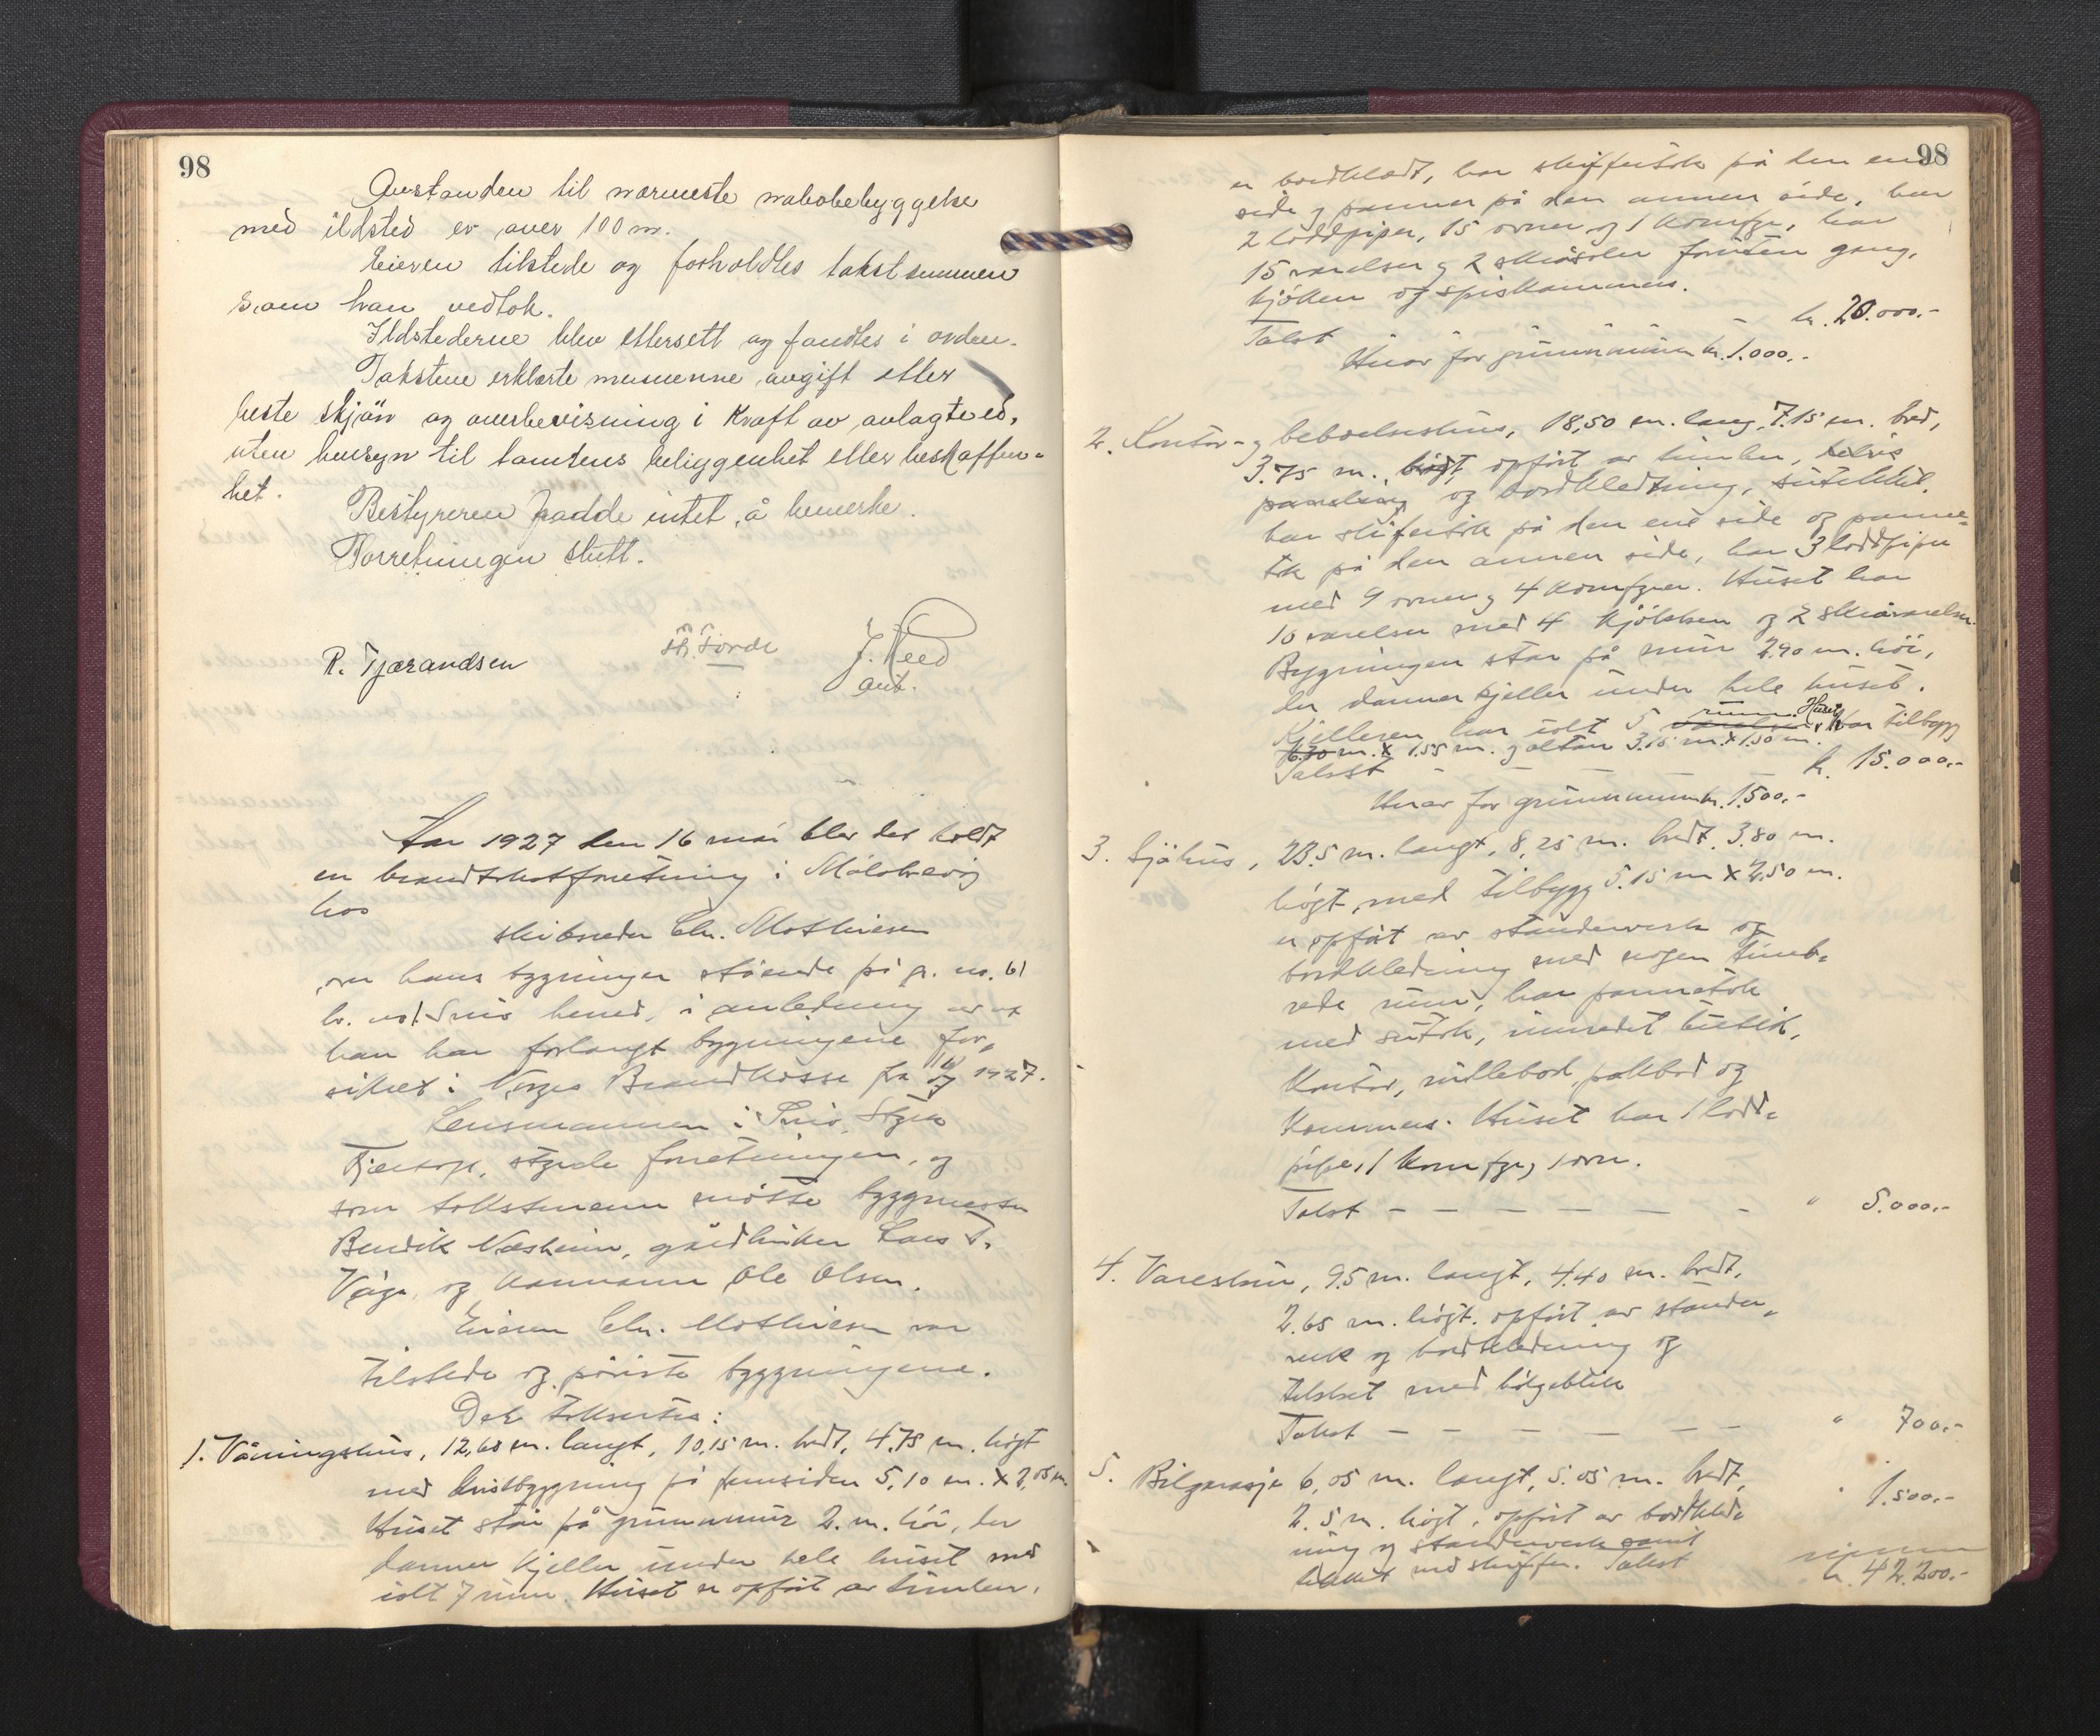 98
Avstanden til nærmeste nabobebyggelse
med ildsted er over 100 m.
Eieren tilstede og forholdtes takstsummen
som han vedtok.
Ildstederne blev ettersett og fandtes i orden.
Takstene erklærte mennene avgift etter
beste skjön og overbevisning i Kraft av avlagt ed,
uten hensyn til tomtens beliggenhet eller beskaffen-
het.
Bestyreren hadde intet å bemerke.
Forretningen slutt.
R. Tjærandsen
J. Reed
Aar 1927 den 16 mai blev det holdt
en brandtakstforretning i
hos
skibsreder Chr. Mathiesen
over hans bygninger stående på g. no. 61
br. no 1 herred, i anledning av at
han har forlangt bygningene for-
sikret i Norges Brandkasse fra 1927.
Lensmannen i
styrde forretningen, og
som takstmenn møtte byggmester
Bendik Næsheim, gårdbruker Lars T.
Våge og Kaumann Ole Olsen.
Eieren Chr. Mathiesen var
tilstede og påviste bygningene.
Det taksertes:
1. Våningshus, 12,60 m. langt, 10,15 m. bredt, 4,75 m. høgt
med kvistbygning på fremsiden 5,10 m. X 2,05 m.
Huset står på grunnmur 2. m. høi, der
danner kjeller under hele huset med
ialt 7 rum. Huset er opført av tømber,
98
er bordklædt, har skiffertak på den ene
side og panner på den annen side, har
2 loddpiper, 15 ovner og 1 komfyr, har
15 værelser og 2 foruten gang,
kjøken og spiskammers.
Takst - - - - - kr. 20.000,-
Hvor for grunnmuren kr. 1.000,-
2. Kontor- og beboelseshus, 18,50 m. lang, 7.15 m. bred,
3.75 m. høgt, opført av tømber,
paneling og bordkledning,
har skifertak på den ene side og panne-
tak på den annen side, har 3 loddpiper
med 9 ovner og 4 komfyrer. Huset har
10 værelser med 4 kjøkken og 2
Bygningen står på mur 2.90 m. høi,
der danner kjeller under hele huset.
Kjelleren har ialt 5 rum. Huset har tilbygg
m. X 1.55 m. og altan 3.15 m. X 1.50 m.
Takst - - - - kr. 15.000,-
Hvor for grunnmuren kr. 1500,-
3. Sjöhus, 23.5 m. langt, 8,25 m. bredt, 3.80 m.
høgt, med tilbygg 5.15 m X 2.50 m.
er opført av standerverk og
bordkledning med nogen tømb-
rede rum, har pannetak
med sutak, innredet butik,
Kontor, rullebod, pakbod og
Kammers. Huset har 1 lodd-
pipe, 1 komfyr, 1 ovn.
Takst - - - - - - - " 5.000,-
4. Vareskur, 9.5 m. langt, 4.40 m. bredt,
2.65 m. høgt, opført av stander-
verk og bordkledning og
tekket med bølgeblikk
Takst - - - - - - " 700,-
5. Bilgarasje 6,05 m. langt, 5.05 m. bredt,
2.5 m. høgt, opført av bordkled-
ning og standerverk samt
tekket med skiffer. Takst " 1.500,-
kr. 42.200,-